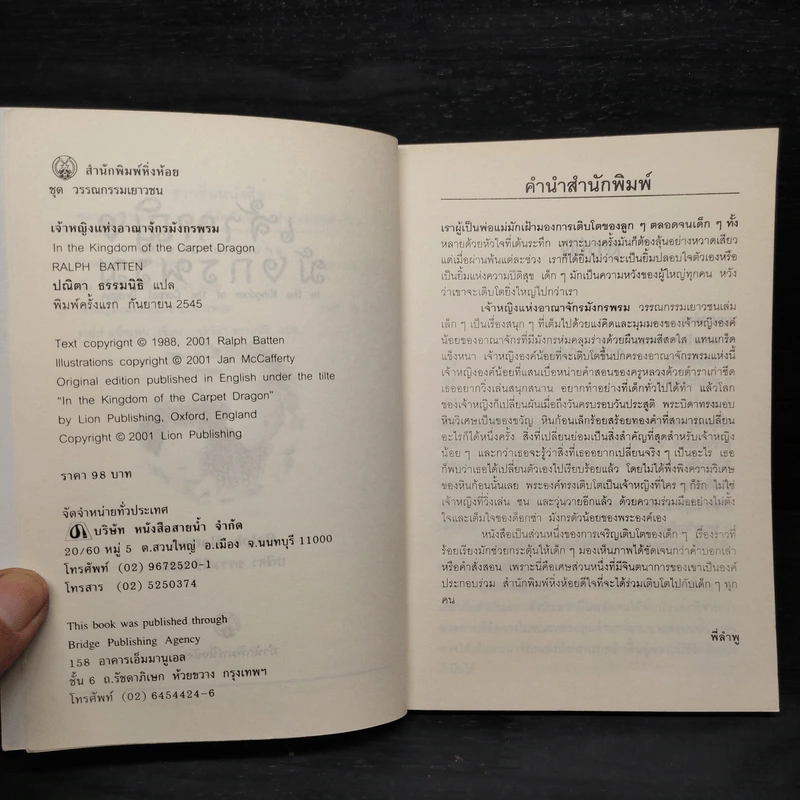 สำนักพิมพ์หิ่งห้อย
ชุด วรรณกรรมเยาวชน
เจ้าหญิงแห่งอาณาจักรมังกรพรม
In the Kingdom of the Carpet Dragon
RALPH BATTEN
ปณิตา ธรรมนิธิ แปล
พิมพ์ครั้งแรก กันยายน 2545
Text copyright © 1988, 2001 Ralph Batten
Illustrations copyright © 2001 Jan McCafferty
Original edition published in English under the tilte
"In the Kingdom of the Carpet Dragon"
by Lion Publishing, Oxford, England
Copyright © 2001 Lion Publishing
ราคา 98 บาท
จัดจำหน่ายทั่วประเทศ
บริษัท หนังสือสายน้ำ จำกัด
20/60 หมู่ 5 ต.สวนใหญ่ อ.เมือง จ.นนทบุรี 11000
โทรศัพท์ (02) 9672520-1
โทรสาร (02) 5250374
This book was published through
Bridge Publishing Agency
158 อาคารเอ็มมานูเอล
ชั้น 6 ถ.รัชดาภิเษก ห้วยขวาง กรุงเทพฯ
โทรศัพท์ (02) 6454424-6
คำนำสำนักพิมพ์
เราผู้เป็นพ่อแม่มักเฝ้ามองการเติบโตของลูก ๆ ตลอดจนเด็ก ๆ ทั้ง
หลายด้วยหัวใจที่เต้นระทึก เพราะบางครั้งมันก็ต้องลุ้นอย่างหวาดเสียว
แต่เมื่อผ่านพ้นแต่ละช่วง เราก็ได้ยิ้มไม่ว่าจะเป็นยิ้มปลอบใจตัวเองหรือ
เป็นยิ้มแห่งความปีติสุข เด็ก ๆ มักเป็นความหวังของผู้ใหญ่ทุกคน หวัง
ว่าเขาจะเติบโตยิ่งใหญ่ไปกว่าเรา
เจ้าหญิงแห่งอาณาจักรมังกรพรม วรรณกรรมเยาวชนเล่ม
เล็ก ๆ เป็นเรื่องสนุก ๆ ที่เต็มไปด้วยแง่คิดและมุมมองของเจ้าหญิงองค์
น้อยของอาณาจักรที่มีมังกรห่มคลุมร่างด้วยผืนพรมสีสดใส แทนเกล็ด
แข็งหนา เจ้าหญิงองค์น้อยที่จะเติบโตขึ้นปกครองอาณาจักรพรมแห่งนี้
เจ้าหญิงองค์น้อยที่แสนเบื่อหน่ายคำสอนของครูหลวงด้วยตำราเก่าซีด
เธออยากวิ่งเล่นสนุกสนาน อยากทำอย่างที่เด็กทั่วไปได้ทำ แล้วโลก
ของเจ้าหญิงก็เปลี่ยนผันเมื่อถึงวันครบรอบวันประสูติ พระบิดาทรงมอบ
หินวิเศษเป็นของขวัญ หินก้อนเล็กร้อยสร้อยทองคำที่สามารถเปลี่ยน
อะไรก็ได้หนึ่งครั้ง สิ่งที่เปลี่ยนย่อมเป็นสิ่งสำคัญที่สุดสำหรับเจ้าหญิง
น้อย ๆ และกว่าเธอจะรู้ว่าสิ่งที่เธออยากเปลี่ยนจริง ๆ เป็นอะไร เธอ
ก็พบว่าเธอได้เปลี่ยนตัวเองไปเรียบร้อยแล้ว โดยไม่ได้พึ่งพิงความวิเศษ
ของหินก้อนนั้นเลย พระองค์ทรงเติบโตเป็นเจ้าหญิงที่ใคร ๆ ก็รัก ไม่ใช่
เจ้าหญิงที่วิ่งเล่น ซน และวุ่นวายอีกแล้ว ด้วยความร่วมมืออย่างไม่ตั้ง
ใจและเต็มใจของด็อกซ่า มังกรตัวน้อยของพระองค์เอง
หนังสือเป็นส่วนหนึ่งของการเจริญเติบโตของเด็ก ๆ เรื่องราวที่
ร้อยเรียงมักช่วยกระตุ้นให้เด็ก ๆ มองเห็นภาพได้ชัดเจนกว่าคำบอกเล่า
หรือคำสั่งสอน เพราะนี่คือเศษส่วนหนึ่งที่มีจินตนาการของเขาเป็นองค์
ประกอบร่วม สำนักพิมพ์หิ่งห้อยดีใจที่จะได้ร่วมเติบโตไปกับเด็ก ๆ ทุก
คน
พี่ลำพู